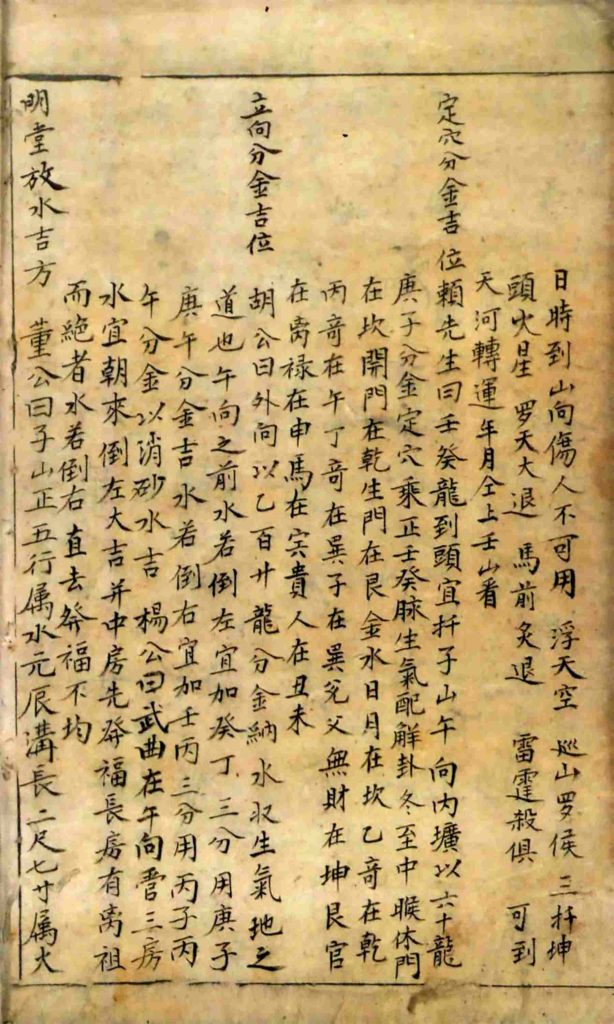 日時到山向傷人不可用 浮天空 巡山罗侯 三扦坤
頭火星 罗天大退 馬前炙退 雷霆殺俱 可到
天河轉運年月仝上壬山看
定穴分金吉位賴先生曰壬癸龍到頭宜扦子山午向内壙以六十龍
庚子分金定穴乘正壬癸脉生氣配解卦冬至中𠋫休門
在坎開門在乾生門在艮金水日月在坎乙竒在乾
丙竒在午丁竒在巽子在巽兊父無財在坤艮官
在离禄在申馬在寅貴人在丑未
立向分金吉位 胡公曰外向以乙百廿龍分金納水収生氣地之
道也午向之前水若倒左宜加癸丁三分用庚子
庚午分金吉水若倒右宜加壬丙三分用丙子丙
午分金以消砂水吉 楊公曰武曲在午向雷三房
水宜朝來倒左大吉并中房先發福長房有离祖
而絶者水若倒右直去發福不均
明堂放水吉方 董公曰子山正五行属水元辰溝長二尺七廿属火